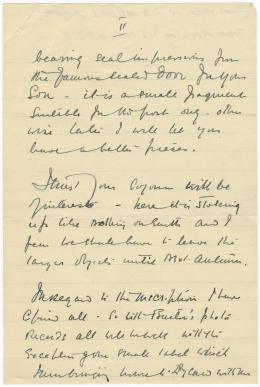 II
bearing seal impressions from
the famous sealed Door for your
Son - it is a small fragment
suitable for the post only - other
wise later I will let you
have a better pieces.
I trust your sojourn will be
- here it is
up like nothing on Earth and I
fear we shall have to leave the
larger objects until next Autumn.
In regard to the inscription I have
all - so with photo
records all the
small label which
I am bringing home to